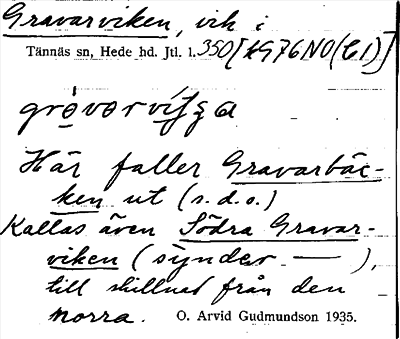 Gravarviken, vik i
Tännäs sn, Hede hd. Jtl. l. 350 [AG76NO(C1)]
Här faller Gravarbäc-
ken ut (s.d.o.)
Kallas även Södra Gravar-
viken (synder — ),
till skillnad från den
norra. O. Arvid Gudmundson 1935.